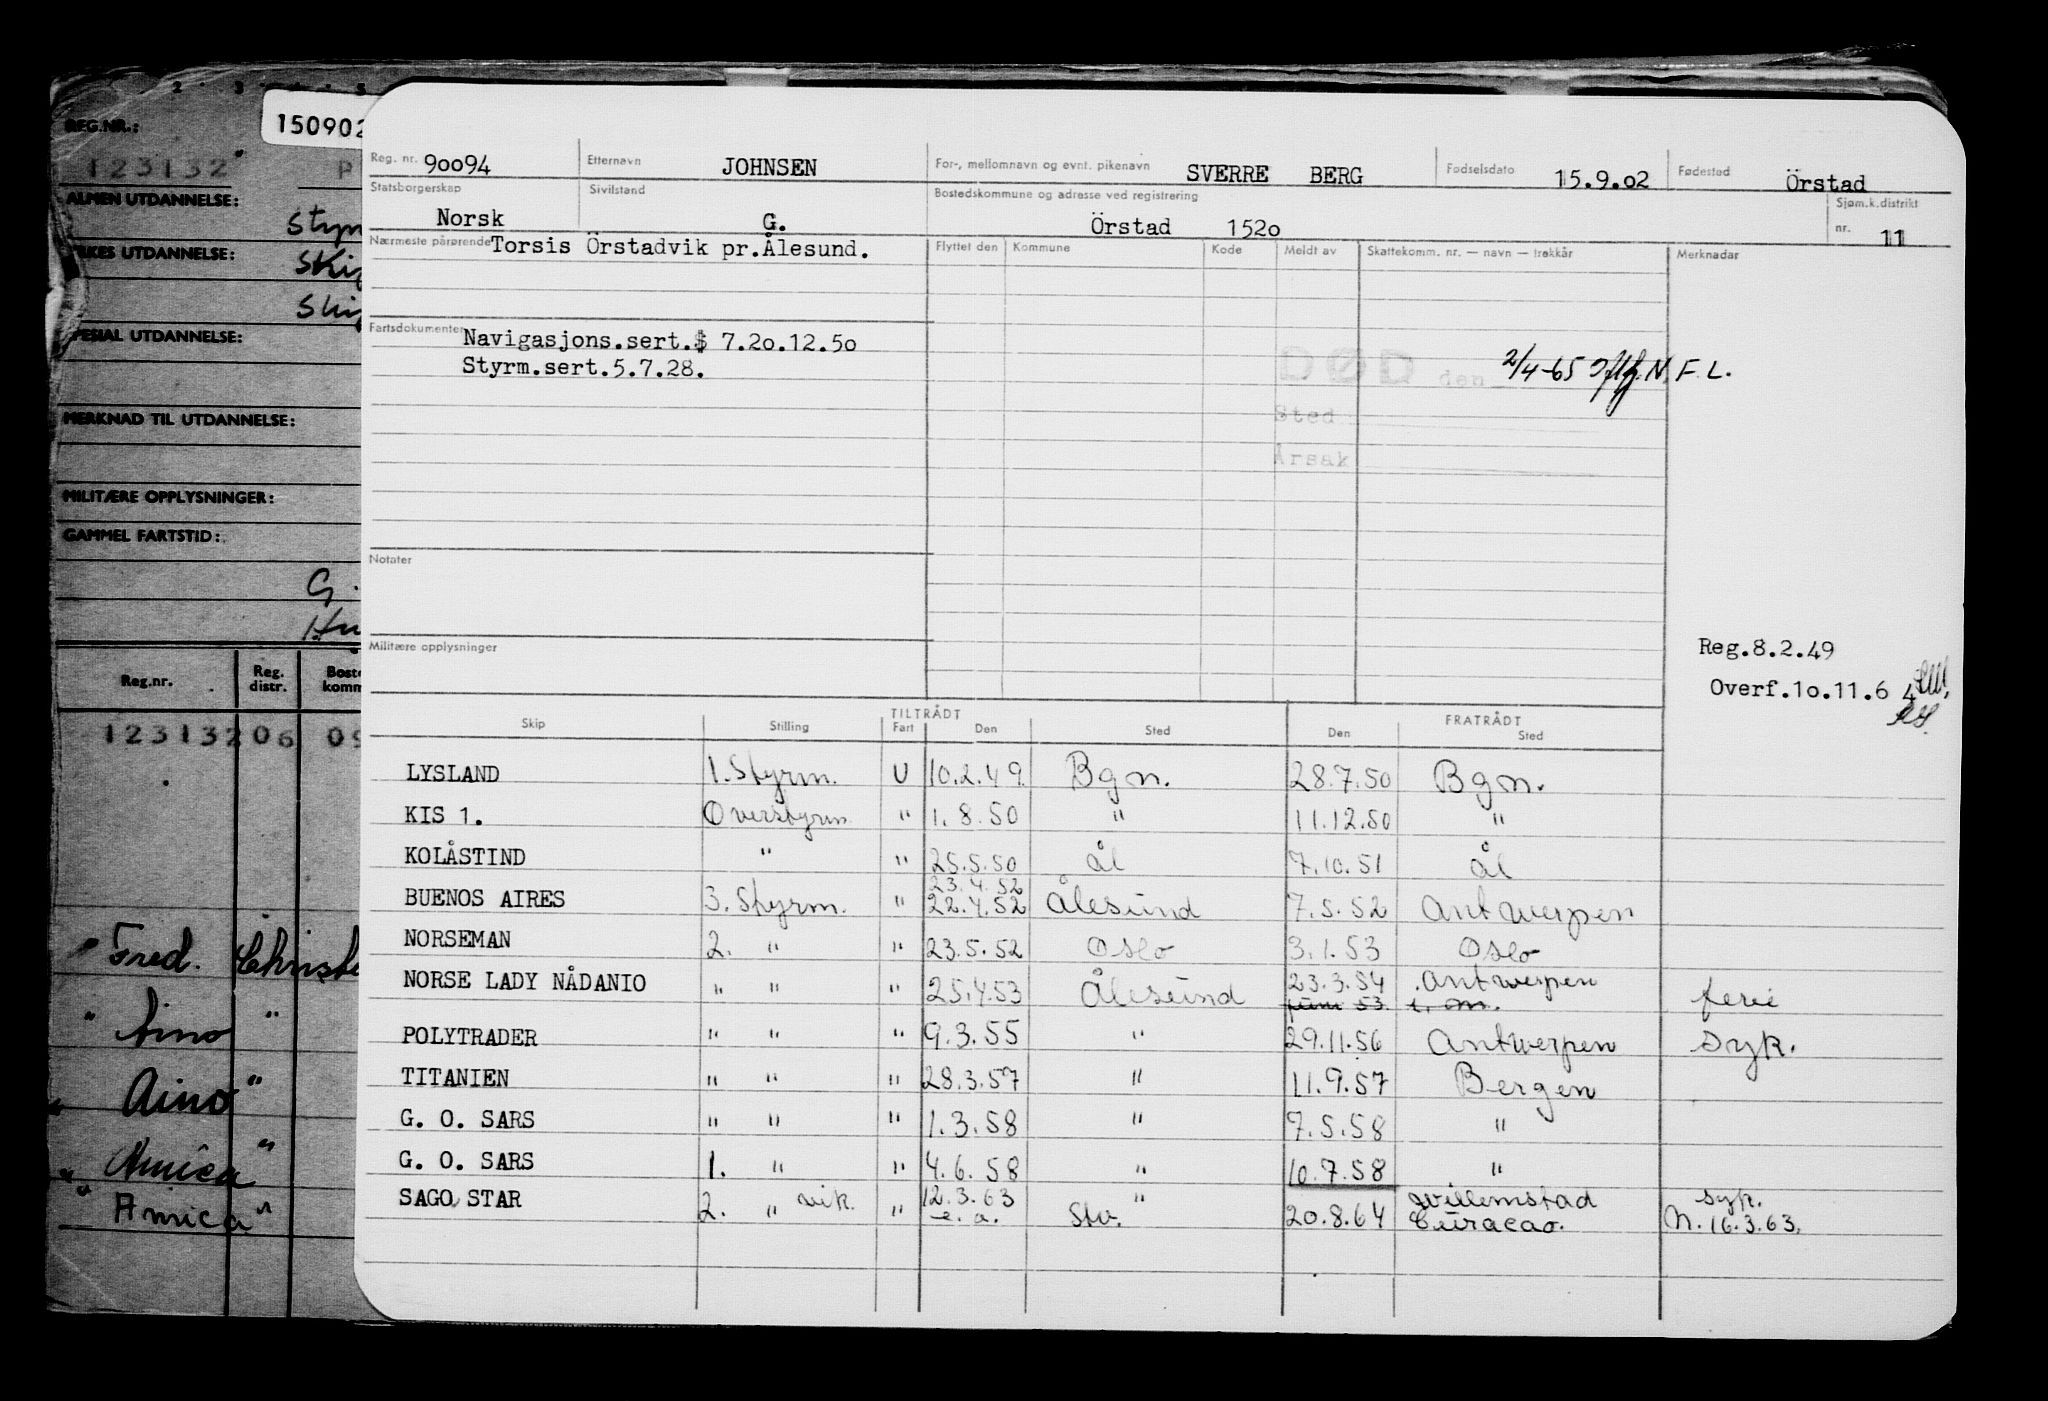 2 3 4 5
REG.NR.:
123132 P
ALMEN UTDANNELSE:
Styr
YRKES UTDANNELSE:
Skip
Skip
SPESIAL UTDANNELSE:
MERKNAD TIL UTDANNELSE:
MILITÆRE OPPLYSNINGER:
GAMMEL FARTSTID:
G.
Hu
Reg.nr. Reg. distr. Boste komm
123132 06 09
" Fred. Christe
" Aino "
" Aino "
" Amica "
" Amica "
150902
Reg. nr. 90094 Etternavn JOHNSEN For-, mellomnavn og evnt. pikenavn SVERRE BERG Fødselsdato 15.9.02 Fødested Örstad
Statsborgerskap Norsk Sivilstand G. Bostedskommune og adresse ved registrering Örstad 1520 Sjøm.k.distrikt nr. 11
Nærmeste pårørende Torsis Örstadvik pr.Ålesund. Flyttet den Kommune Kode Meldt av Skattekomm. nr. — navn — trekkår Merknadar
Fartsdokumenter Navigasjons.sert.$ 7.20.12.50
Styrm.sert.5.7.28.
DØD den 2/4-65 N.F.L.
Sted
Årsak
Notater
Militære opplysninger
Reg.8.2.49
Overf.10.11.6 4
TILTRÅDT FRATRÅDT
Skip Stilling Fart Den Sted Den Sted
LYSLAND 1. Styrm. U 10.2.49. Bgn. 28.7.50 Bgn.
KIS 1. Overstyrm. " 1.8.50 " 11.12.50 "
KOLÅSTIND " " 25.5.50 Ål 7.10.51 Ål
23.4.52
BUENOS AIRES 3. Styrm. " 22.4.52 Ålesund 7.5.52 Antwerpen
NORSEMAN 2. " " 23.5.52 Oslo 3.1.53 Oslo
NORSE LADY NÅDANIO " " " 25.4.53 Ålesund 23.3.54 Antwerpen ferie
juni 53 t. m.
POLYTRADER " " " 9.3.55 " 29.11.56 Antwerpen syk.
TITANIEN " " " 28.3.57 " 11.9.57 Bergen
G. O. SARS " " " 1.3.58 " 7.5.58 "
G. O. SARS 1. " " 4.6.58 " 10.7.58 "
SAGO STAR 2. " vik. " 12.3.63 " Willemstad syk.
e. a. Stv. 20.8.64 Curacao. N. 16.3.63.